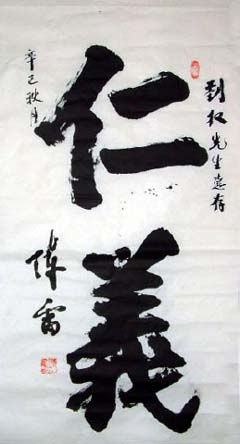 劉权先生惠存
仁義
辛巳秋月
偉雷